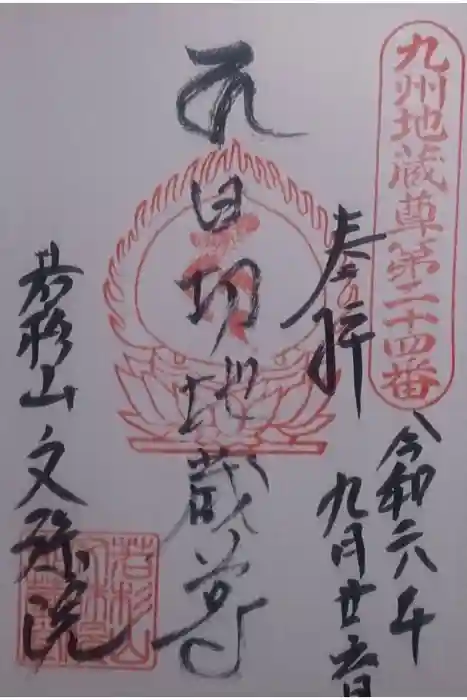 九州地蔵尊第二十四番
奉拝
令和六年
九月廿日
日切地蔵尊
若杉山 文殊院
若杉山